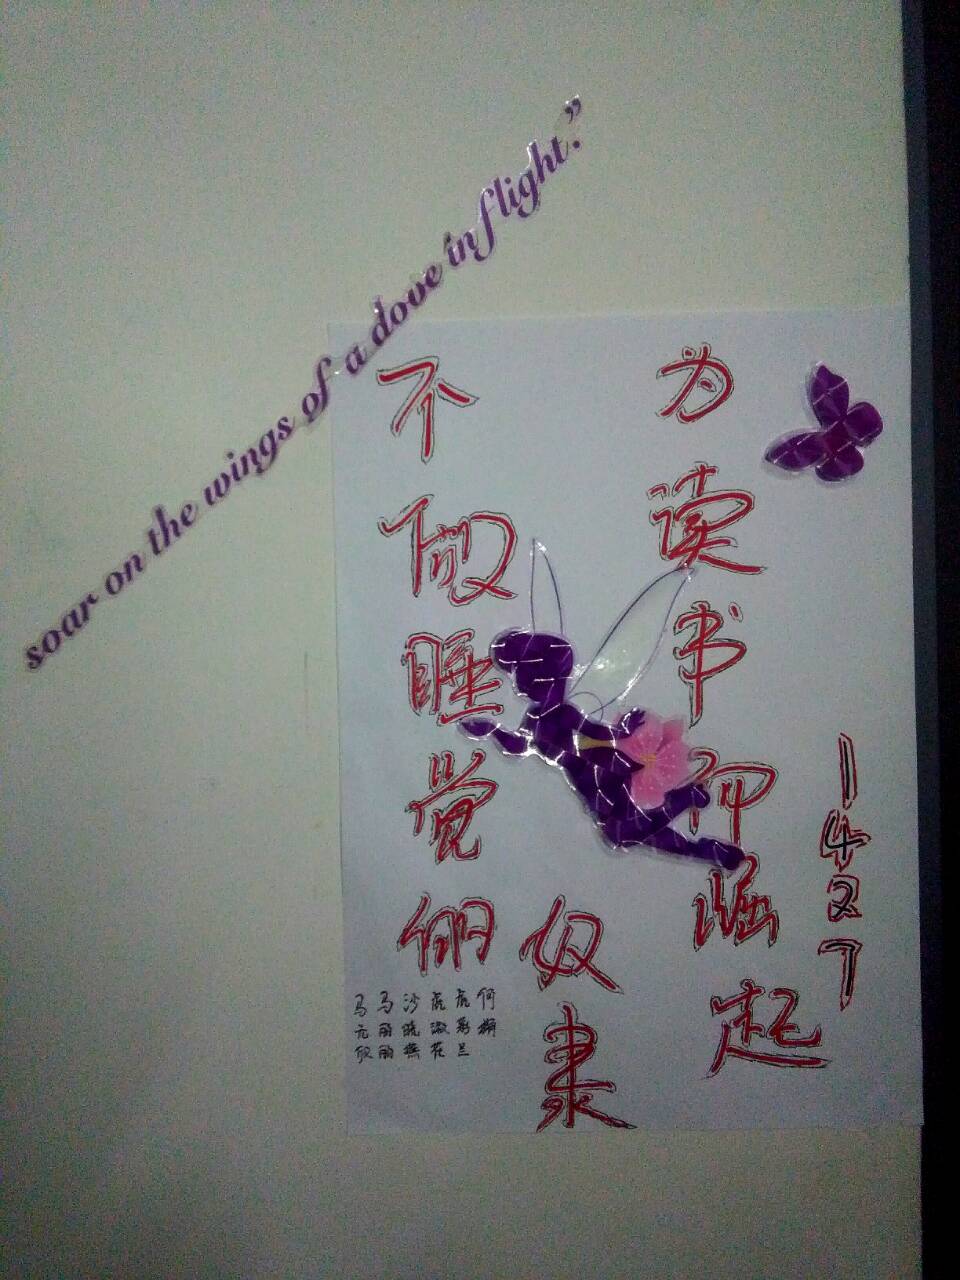 soar on the wings of a dove in flight.”
1427
为读书而崛起
不做睡觉的
奴隶
何娟
虎彩兰
虎淑花
沙晓燕
马丽丽
马元